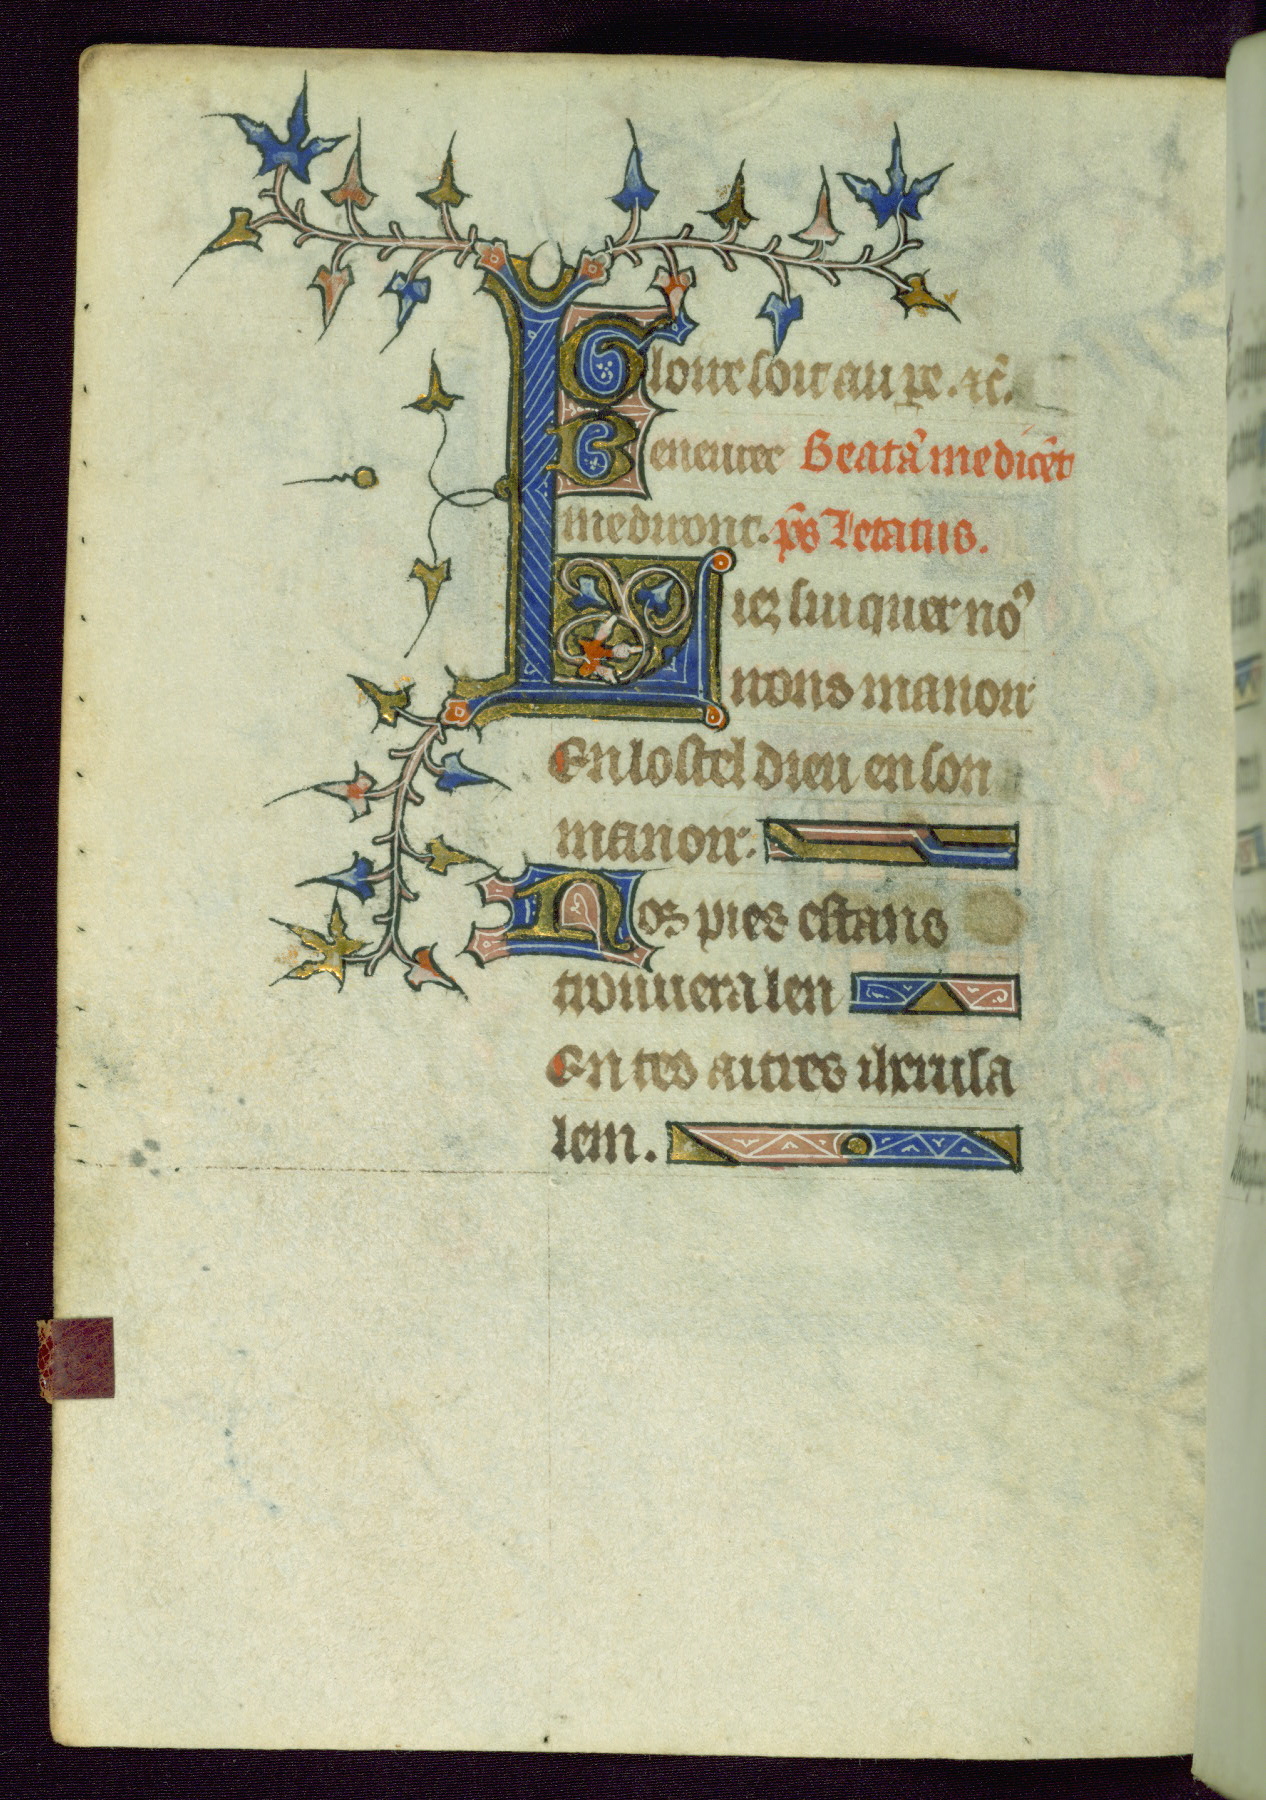 Gloire soit au pe. ⁊c̃.
Beneuree Beata᷑ me dicẽt
me diront. p̃s Letatus.
Liez sui quer noꝰ
irons manoir
En lostel dieu en son
manoir.
Nos pies estans
trouuera len
En tes aitres iherusa
lem.